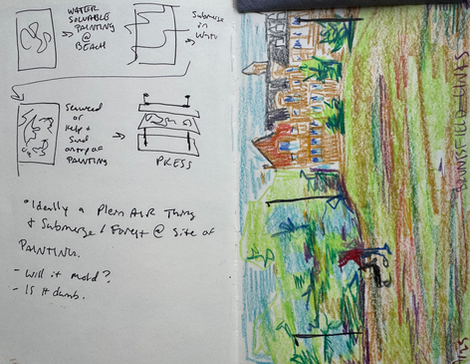 WATER
SOLUABLE
PAINTING
@
BEACH
Submerge
in
Water
Seaweed
or
Kelp +
Sand
on top of
PAINTING
PRESS
* Ideally a Plein AIR Thing
+ Submerge / Forest @ Site of
PAINTING.
- Will it mold?
- Is it dumb.
BRUNTSFIELD LINKS